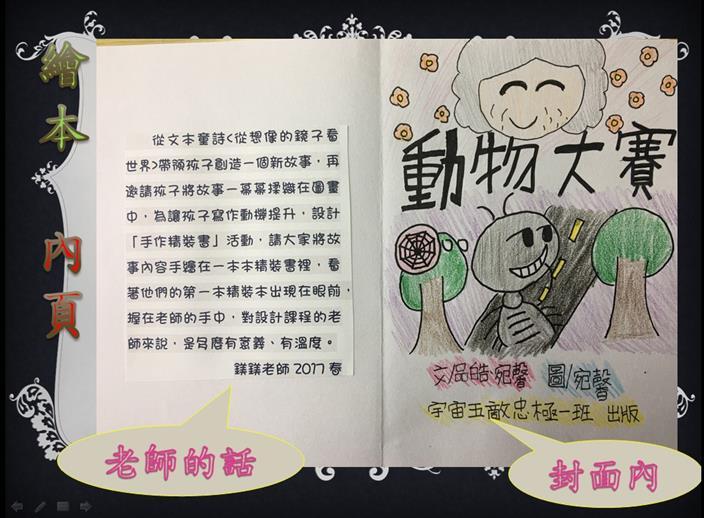 繪本 內頁
從文本童詩<從想像的鏡子看
世界>帶領孩子創造一個新故事，再
邀請孩子將故事一幕幕揉雜在圖畫
中，為讓孩子寫作動機提升，設計
「手作精裝書」活動，請大家將故
事內容手繪在一本本精裝書裡，看
著他們的第一本精裝本出現在眼前，
握在老師的手中，對設計課程的老
師來說，是多麼有意義、有溫度。
鎂鎂老師 2017 春
老師的話
動物大賽
文/品皓.宛馨 圖/宛馨
宇宙五敵忠極一班 出版
封面內